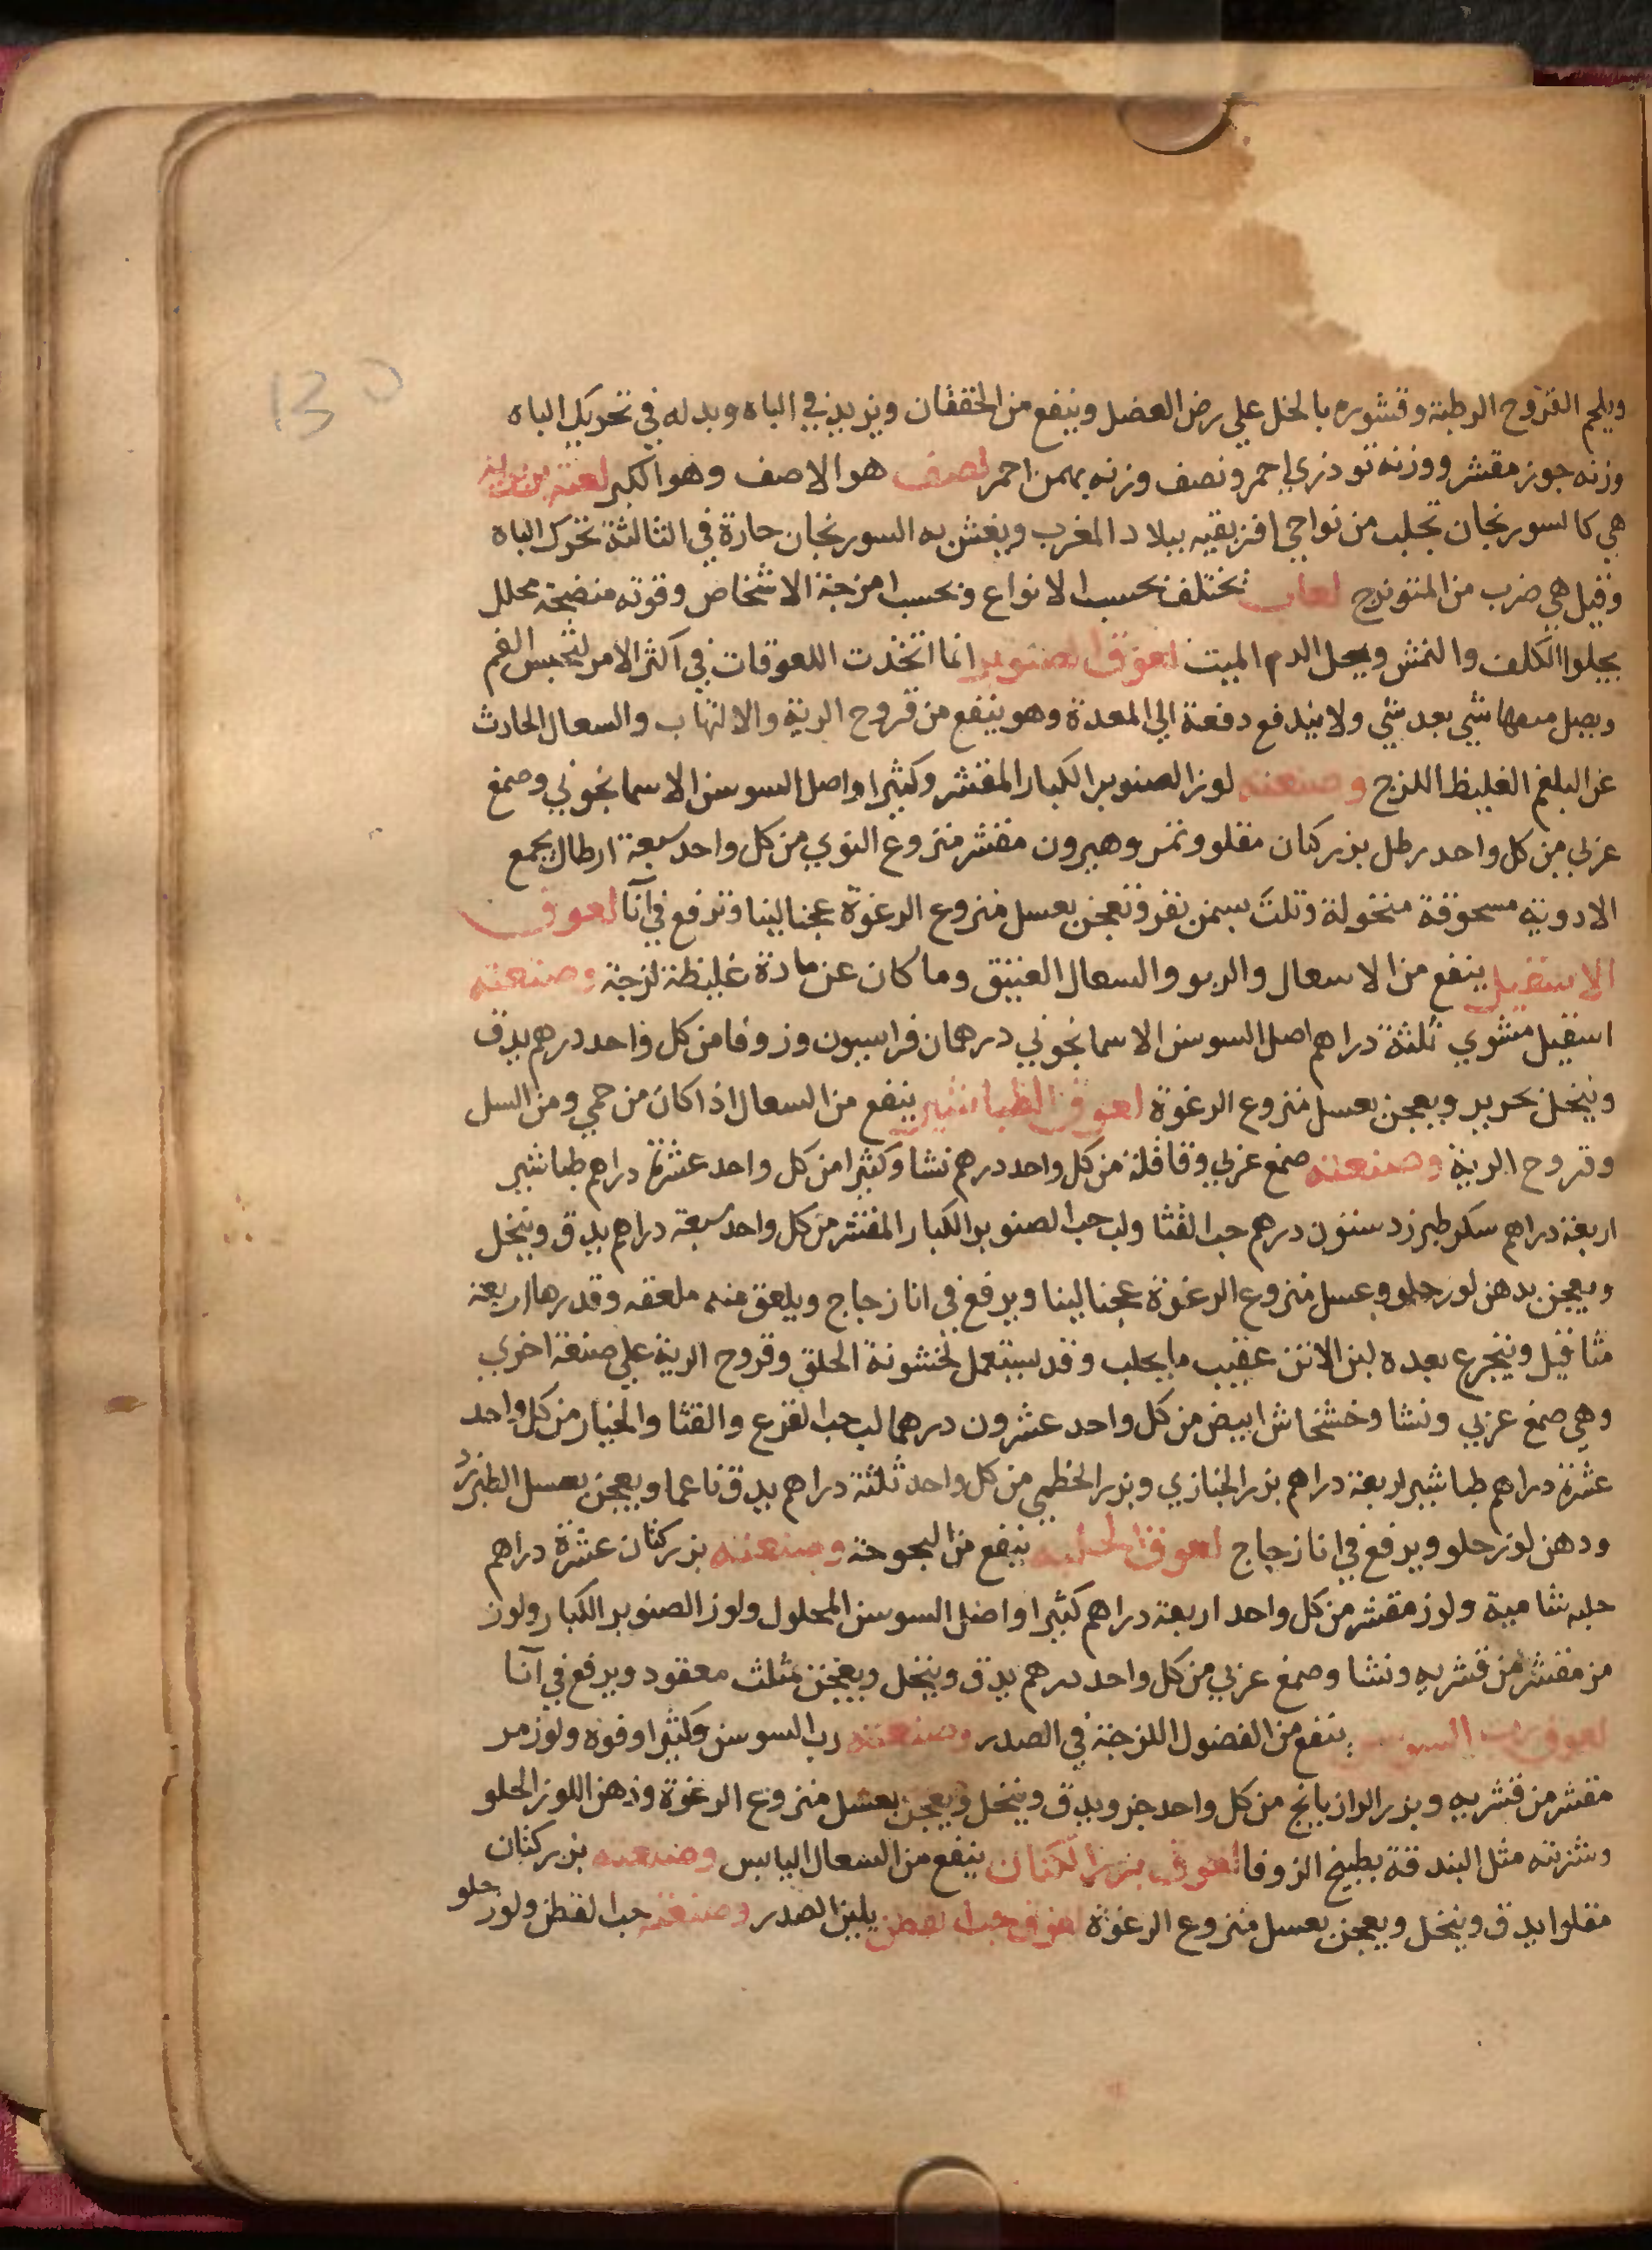 130
ويلحم القروح الرطبة وقشوره بالخل علي رض العضل وينفع من الخفقان ويزيد في الباه وبدله في تحريك الباه
وزنه جوز مقشر ووزنه تودري احمر ونصف وزنه بهمن احمر لصف هو الاصف وهو الكبر لعبة
هي كالسورنجان تجلب من نواحي افريقيه ببلاد المغرب ويغش به السورنجان حارة في الثالثة تحرك الباه
وقيل هي ضرب من لعاب تختلف بحسب الانواع وبحسب امزجة الاشخاص وقوته منضجة محلل
يجلوا الكلف والنمش ويحل الدم الميت لعوق الصنوبر انما اتخذت اللعوقات في اكثر الامر الفم
ويصل معها شي بعد شي ولا يندفع دفعة الي المعدة وهو ينفع من قروح الرية والالتهاب والسعال الحادث
عن البلغم الغليظ اللزج وصنعته لوز الصنوبر الكبار المقشر وكثيرا واصل السوسن الاسمانجوني وصمغ
عربي من كل واحد رطل بزر كتان مقلو وتمر وهيرون مقشر منزوع النوي من كل واحد سبعة ارطال يجمع
الادوية مسحوقة منخولة وتلت بسمن بقر وتعجن بعسل منزوع الرغوة عجنا لينا وترفع في آنا لعوق
الاسقيل ينفع من الاسعال والربو والسعال العتيق وما كان عن مادة غليظة لزجة وصنعته
اسقيل مشوي ثلثة دراهم اصل السوسن الاسمانجوني درهمان فراسيون وزوفا من كل واحد درهم يدق
وينخل بحرير ويعجن بعسل منزوع الرغوة لعوق الطباشير ينفع من السعال اذا كان من حمي ومن السل
وقروح الرية وصنعته صمغ عربي وقاقلة من كل واحد درهم نشا وكثيرا من كل واحد عشرة دراهم طباشير
اربعة دراهم سكر طبرزد ستون درهم حب القثا ولب حب الصنوبر الكبار المقشر من كل واحد سبعة دراهم يدق وينخل
ويعجن بدهن لوز حلو وعسل منزوع الرغوة عجنا لينا ويرفع في انا زجاج ويلعق منه ملعقه وقدرها اربعة
مثاقيل ويتجرع بعده لبن الاتن عقيب ما يحلب وقد يستعمل لخشونة الحلق وقروح الرية علي صنعة اخري
وهي صمغ عربي ونشا وخشخاش ابيض من كل واحد عشرون درهما لب حب القرع والقثا والخيار من كل واحد
عشرة دراهم طباشير اربعة دراهم بزر الخبازي وبزر الخطمي من كل واحد ثلثة دراهم يدق ناعما ويعجن بعسل الطبرزد
ودهن لوز حلو ويرفع في انا زجاج لعوق الحلبه ينفع من البحوحة وصنعته بزر كتان عشرة دراهم
حلبه شامية ولوز مقشر من كل واحد اربعة دراهم كثيرا واصل السوسن المحلول ولوز الصنوبر الكبار ولوز
مر مقشر من قشريه ونشا وصمغ عربي من كل واحد درهم يدق وينخل ويعجن بمثلث معقود ويرفع في آنا
لعوق رب السوس ينفع من الفضول اللزجة في الصدر وصنعته رب السوسن وكثيرا وفوه ولوز مر
مقشر من قشريه وبزر الرازيانج من كل واحد جزو يدق وينخل ويعجن بعسل منزوع الرغوة ودهن اللوز الحلو
وشربته مثل البندقة بطبيخ الزوفا لعوق بزر الكتان ينفع من السعال اليابس وصنعته بزر كتان
مقلوا يدق وينخل ويعجن بعسل منزوع الرغوة لعوق حب القطن يلين الصدر وصنعته حب القطن ولوز حلو